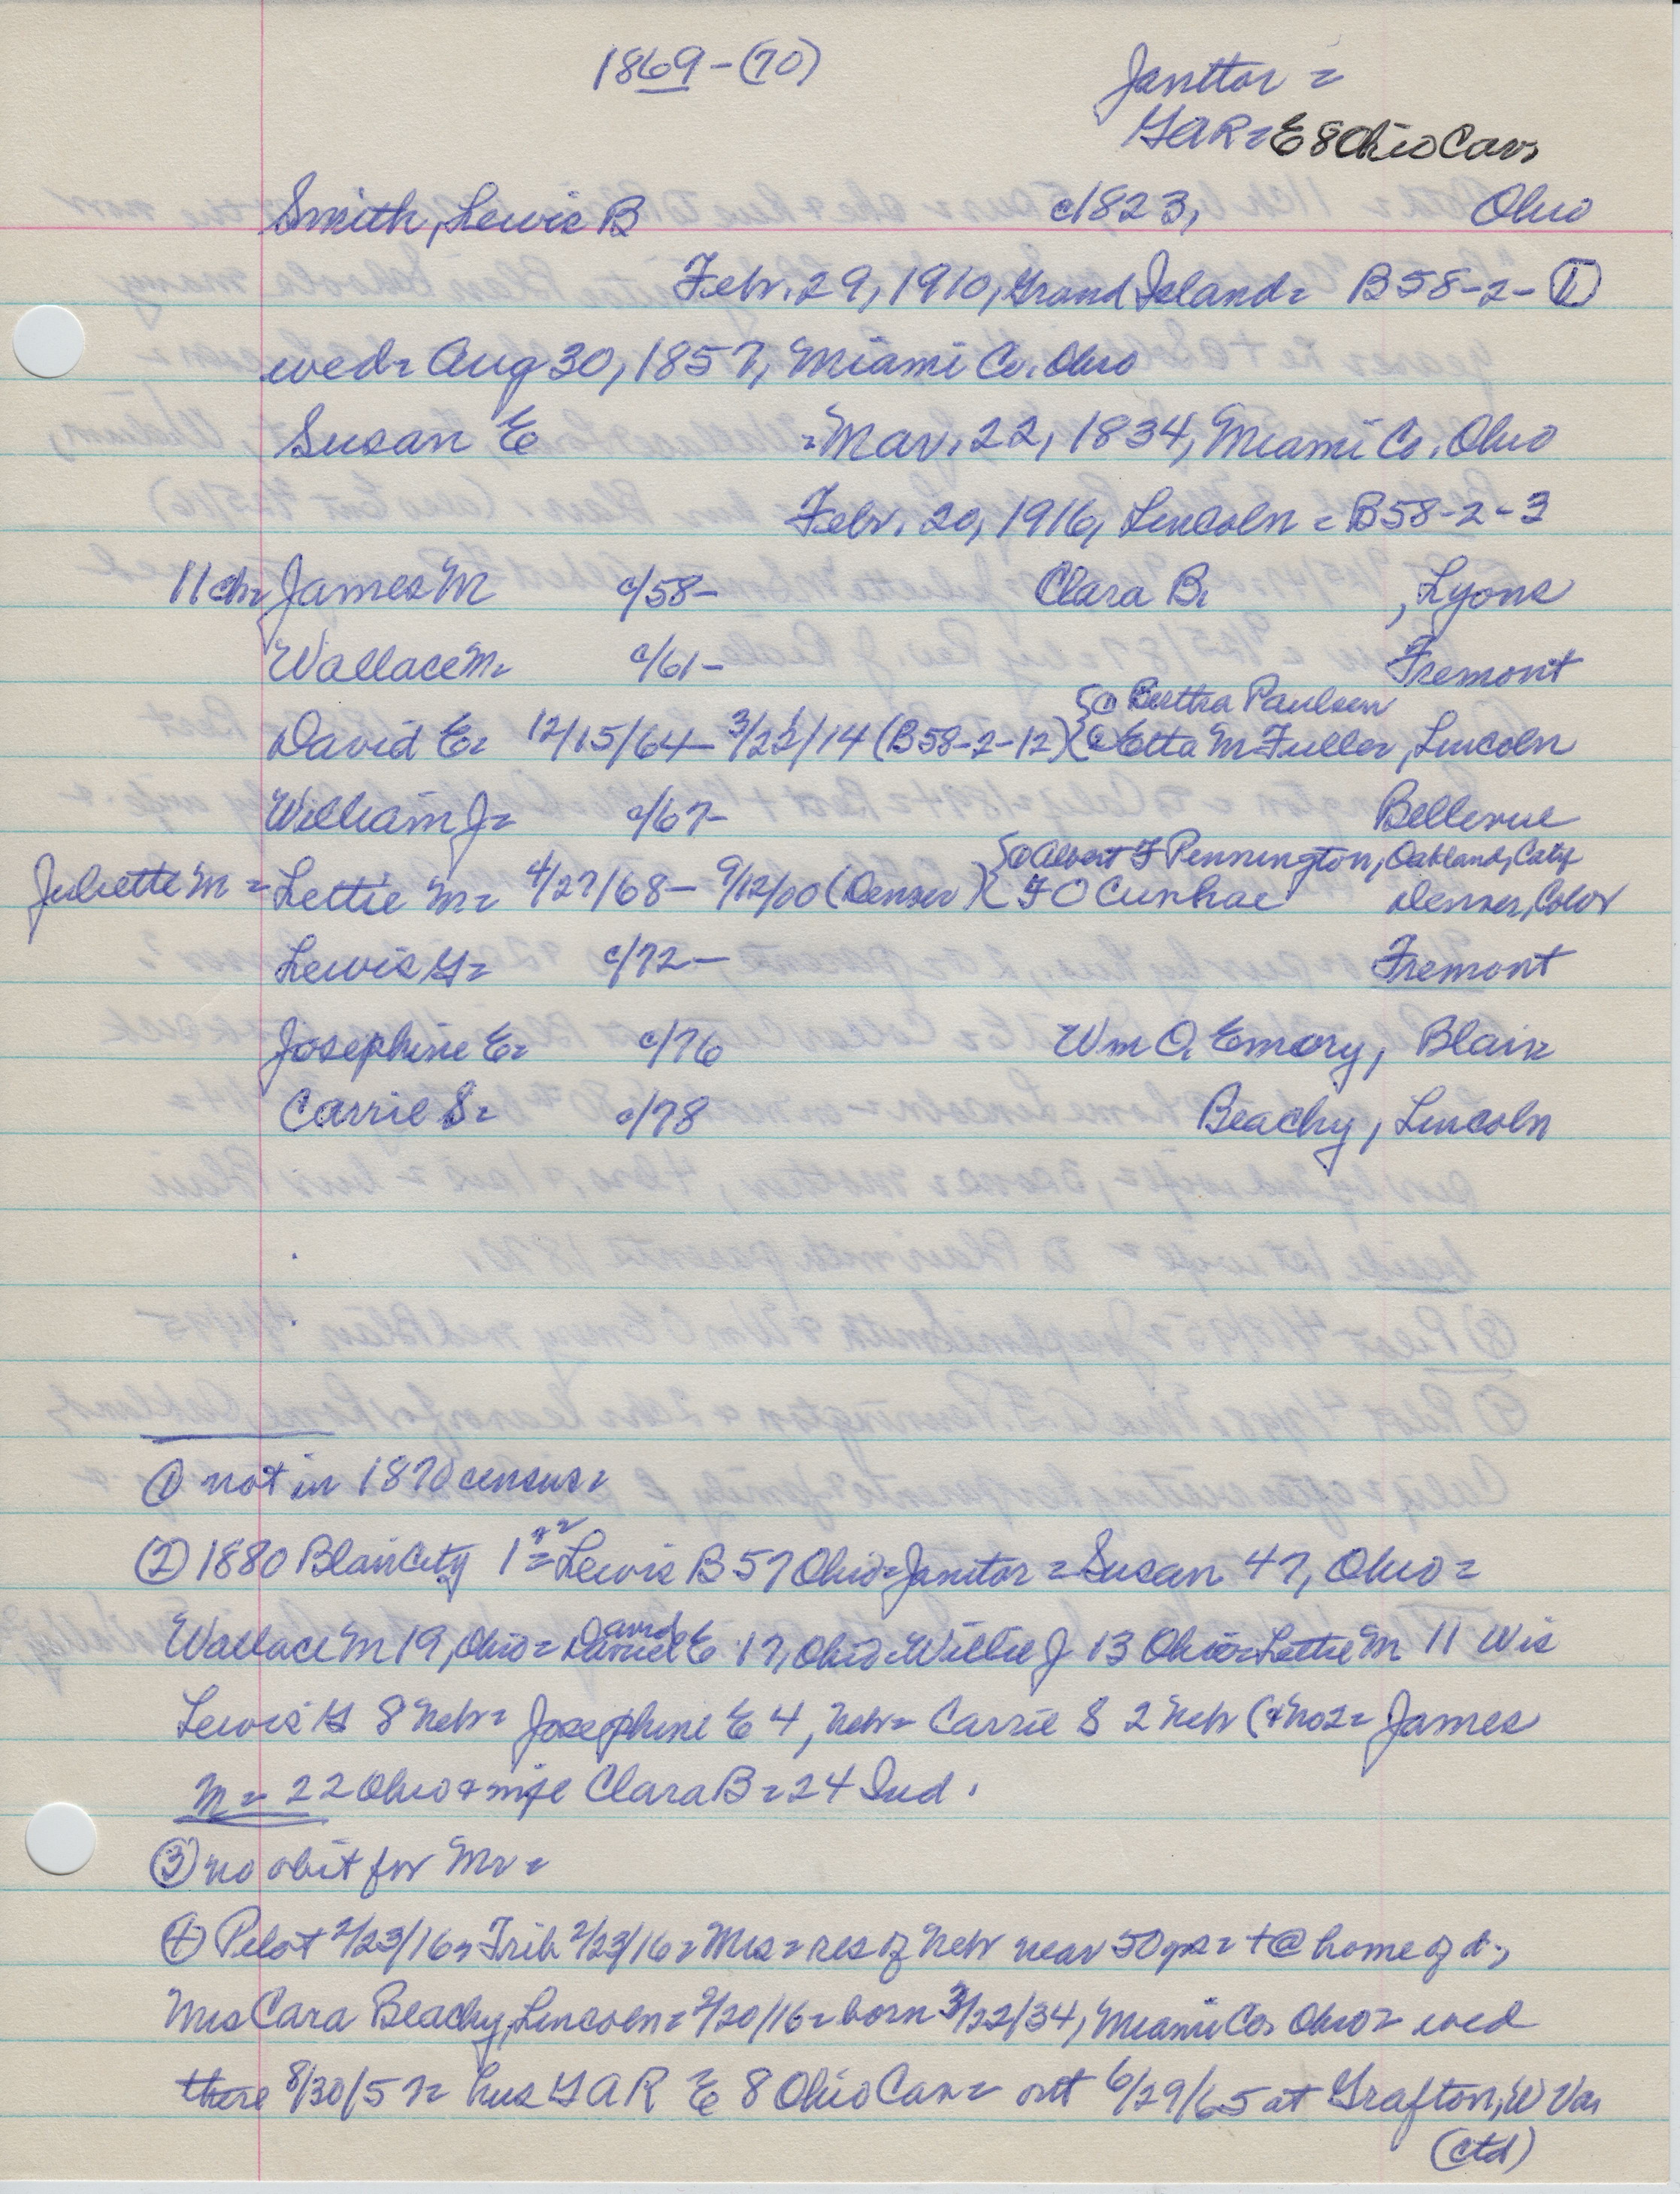 1869-(70)
Janitor =
GAR = E 8 Ohio Cav,
Smith, Lewis B c/1823, Ohio
Febr. 29, 1910, Grand Island = B58-2-①
wed = Aug 30, 1857, Miami Co. Ohio
Susan E = Mar. 22, 1834, Miami Co. Ohio
Febr. 20, 1916, Lincoln = B58-2-3
11 ch = James M c/58- Clara B. , Lyons
Wallace M = c/61- Fremont
① Bertha Paulsen
David E = 12/15/64- 3/22/14 (B58-2-12) { ② Etta M Fuller, Lincoln
William J = c/67- Bellevue
① Albert F Pennington, Oakland, Calif
Juliette M = Lettie M = 4/27/68- 9/12/00 (Denver) { F O Cunhac Denver, Color
Lewis G = c/72- Fremont
Josephine E = c/76 Wm O. Emory, Blair
Carrie S = c/78 Beachy, Lincoln
① not in 1870 census =
② 1880 Blair City 1 = Lewis B 57 Ohio = Janitor = Susan 47, Ohio =
Wallace M 19, Ohio = David E 17, Ohio = Willie J 13 Ohio = Lettie M 11 Wis
Lewis G 8 Nebr = Josephine E 4, Nebr = Carrie S 2 Nebr (& no 2 = James
M = 22 Ohio & wife Clara B = 24 Ind.
③ no obit for Mr =
④ Pilot 2/23/16 = Trib 2/23/16 = Mrs = res of Nebr near 50 yrs = + @ home of d.,
Mrs Cara Beachy, Lincoln = 2/20/16 = born 3/22/34, Miami Co, Ohio = wed
there 8/30/57 = hus GAR E 8 Ohio Cav = out 6/29/65 at Grafton, W Va,
(ctd)